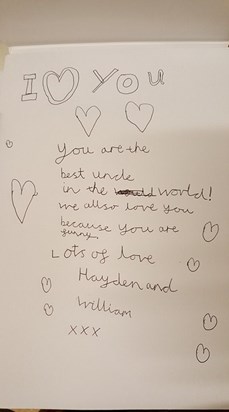 I ♡ YOU
You are the
best uncle
in the world!
we allso love you
because you are
funny
Lots of love
Hayden and
William
xxx